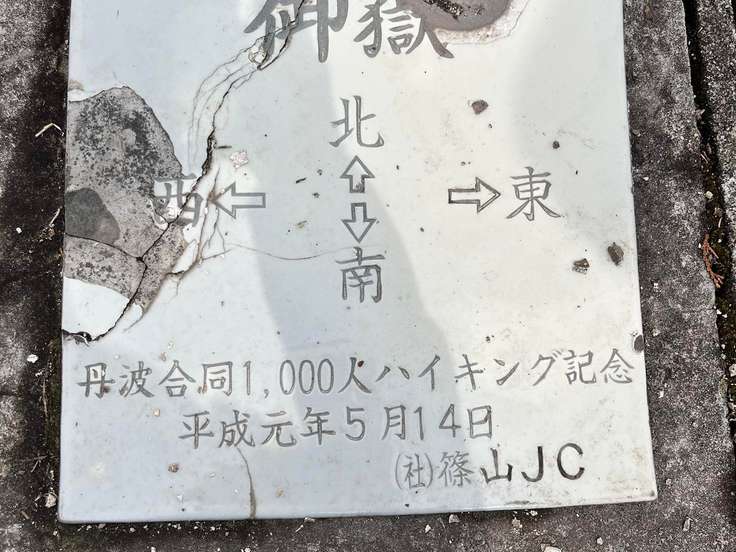 御嶽
北
西 ← → 東
南
丹波合同1,000人ハイキング記念
平成元年5月14日
(社)篠山JC